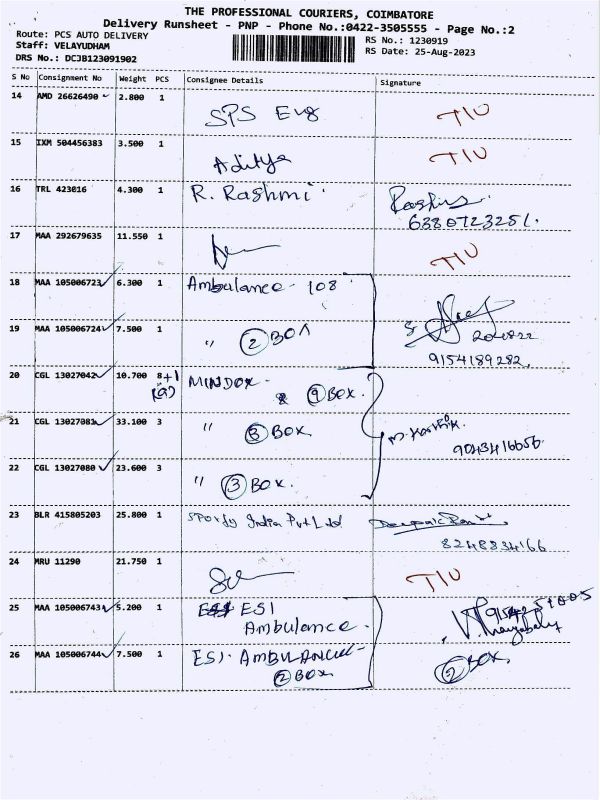 THE PROFESSIONAL COURIERS, COIMBATORE
Delivery Runsheet - PNP - Phone No.:0422-3505555 - Page No.:2
Route: PCS AUTO DELIVERY
Staff: VELAYUDHAM
DRS No.: DCJB123091902
RS No.: 1230919
RS Date: 25-Aug-2023
S No Consignment No Weight PCS Consignee Details Signature
14 AMD 26626490 2.800 1 SPS Eng TIU
15 IXM 504456383 3.500 1 Aditya TIU
16 TRL 423016 4.300 1 R. Rashmi
6380723251.
17 MAA 292679635 11.550 1 TIU
18 MAA 105006723 6.300 1 Ambulance - 108
19 MAA 105006724 7.500 1 " 2 BOX
9154189282
20 CGL 13027042 10.700 8+1 MINDOX
(9) 9 BOX.
21 CGL 13027081 33.100 3 " 3 BOX
9043416656
22 CGL 13027080 23.600 3 " 3 BOX.
23 BLR 415805203 25.800 1 Spordy India Pvt Ltd
8248834166
24 MRU 11290 21.750 1 TIU
25 MAA 105006743 5.200 1 ESI
Ambulance.
26 MAA 105006744 7.500 1 ESI. AMBULANCE
2 BOX 2 BOX,